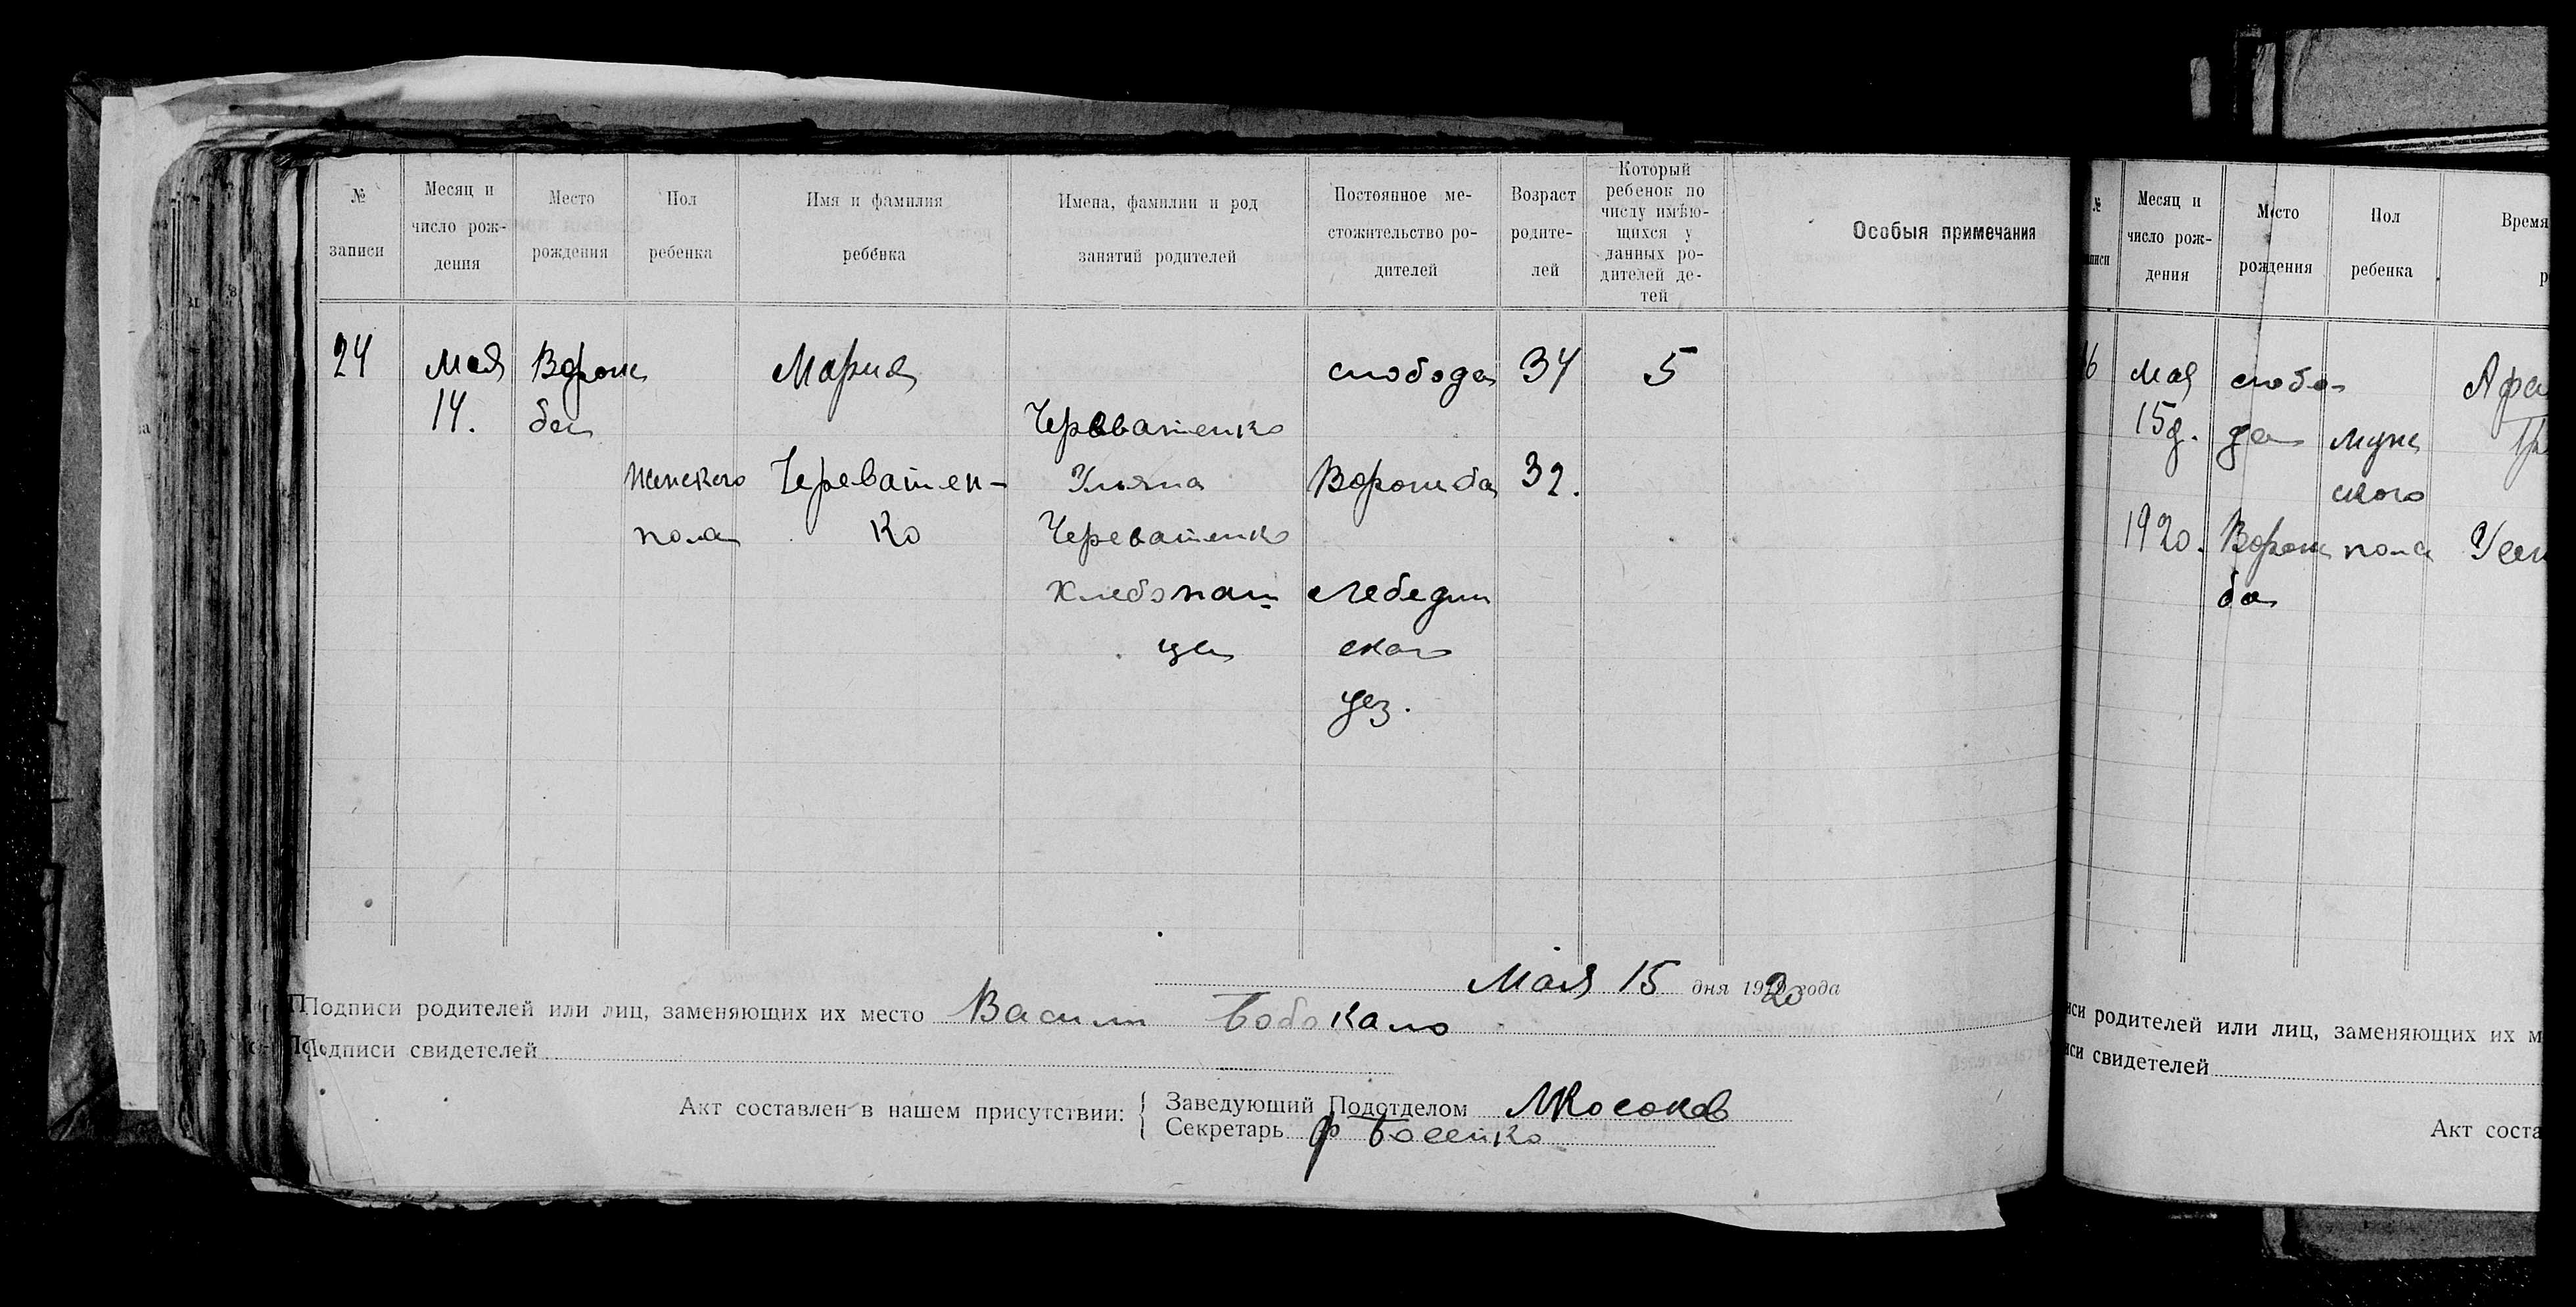 № записи
Месяц и число рож-дения
Место рождения
Пол ребенка
Имя и фамилия ребенка
Имена, фамилии и род занятий родителей
Постоянное ме-стожительство ро-дителей
Возраст родите-лей
Который ребенок по числу имѣю-щихся у данных ро-дителей де-тей
Особыя примечания
24
Мая
14.
Ворож
ба
женского
пола
Мария
Череватен-
ко
Череватенко
Уляна
Череватенко
Хлебопаш
цы
слобода
Ворожба
Лебедин
ского
уез.
34
32.
5
Мая 15 дня 1920 года
Подписи родителей или лиц, заменяющих их место Васили Бобокало
Подписи свидетелей
Акт составлен в нашем присутствии:
Заведующий Подотделом МКосоков
Секретарь Ф Босенко
№
Месяц и число рож-дения
Место рождения
Пол ребенка
Время
Мая
15д.
1920.
слобо-
да
Ворож
ба
муж
ского
пола
родителей или лиц, заменяющих их м
свидетелей
Акт соста